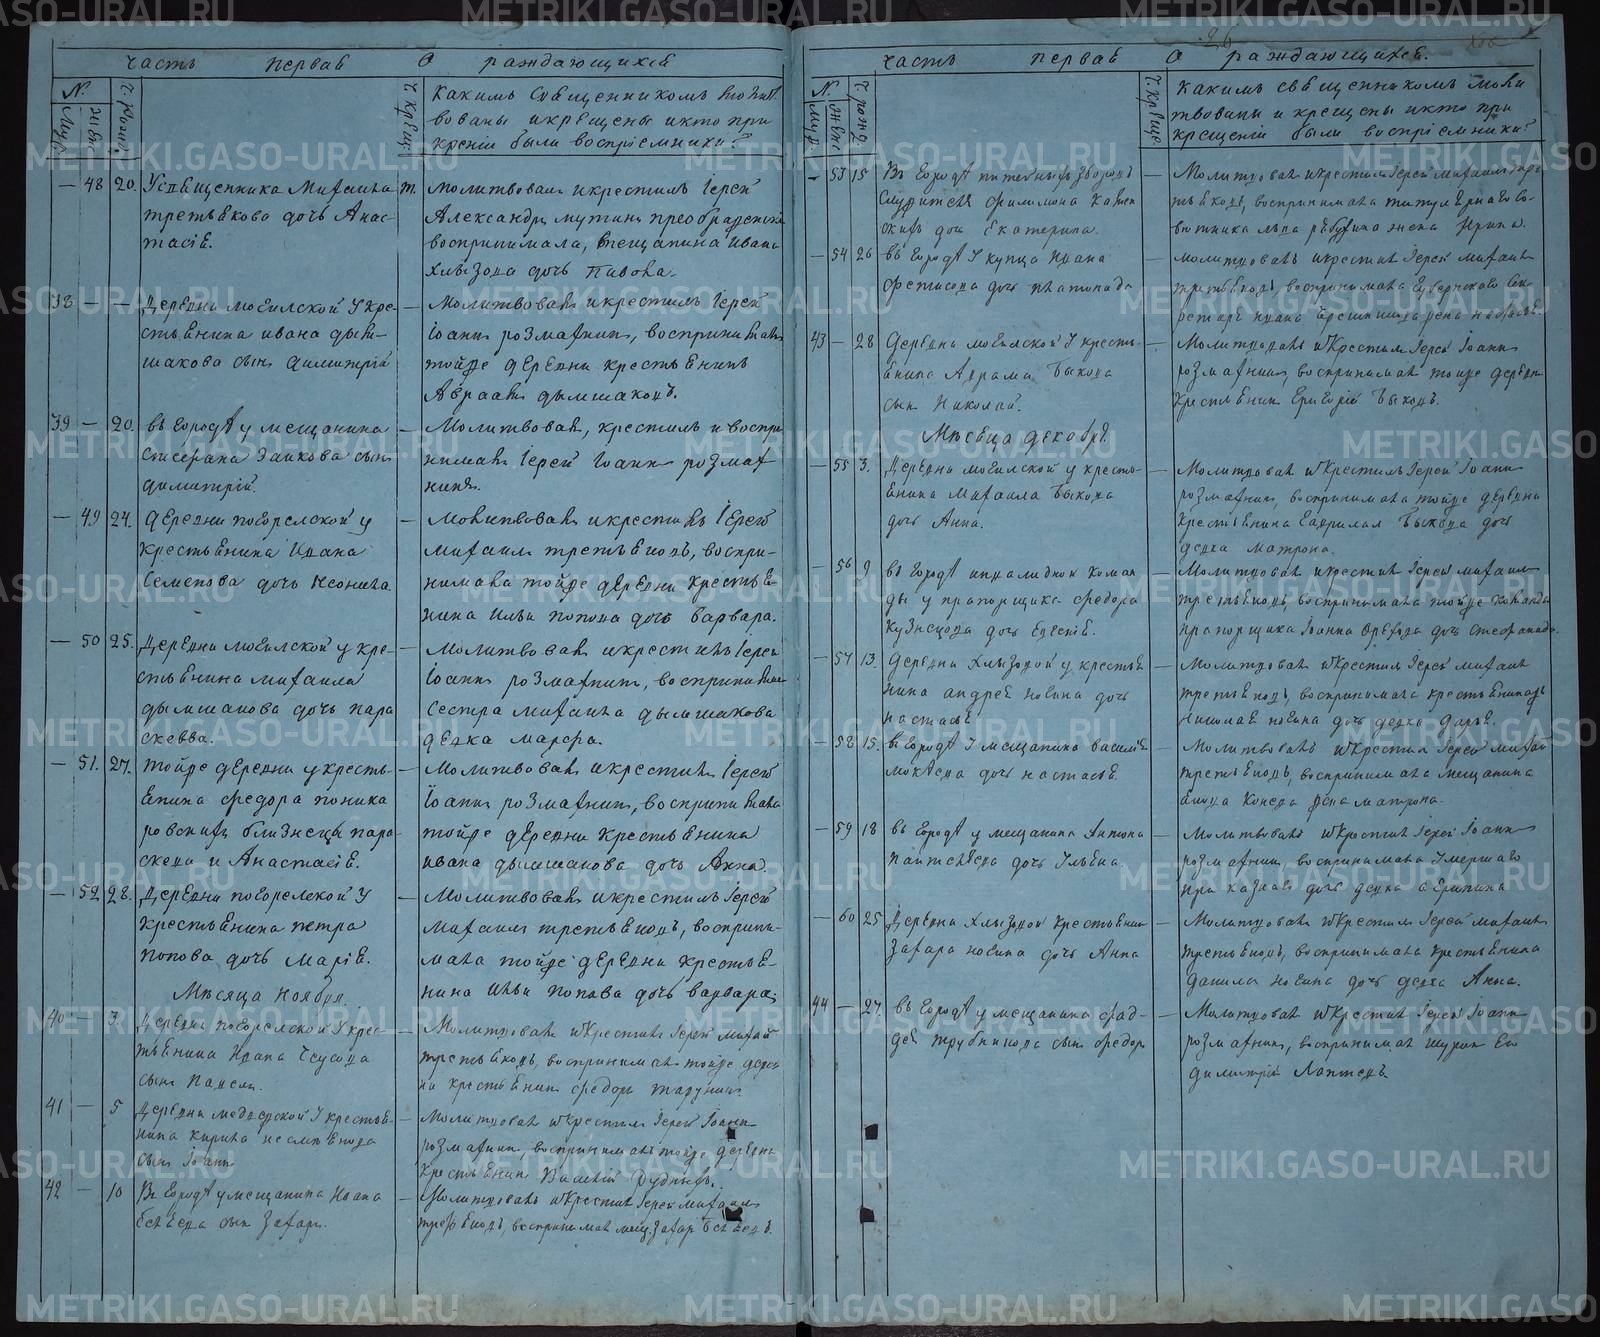 часть первая О раждающихся
N.
Муж.
Жен.
Ч. рожд.
Ч. крещ.
Какимъ священникомъ молит
вованы и крещены и кто при
крщеніи были воспріемники?
— 48 20. У священника Михаила
третьякова дочь Анас-
тасія.
т. молитвовалъ и крестилъ Іерей
Александръ мутинъ преображенскій
воспринимала, мещанина Ивана
Хлызова дочь Павла.
38 — — Деревни могилской У кре-
стьянина ивана дым-
шакова сынъ димитрій
— Молитвовалъ и крестилъ Іерей
Іоаннъ розмахнинъ, воспринималъ
тойже деревни крестьянинъ
Авраамъ дымшаковъ.
39 — 20. въ городѣ у мещанина
Стефана Заикова сынъ
димитрій.
— Молитвовалъ, крестилъ и воспри-
нималъ Іерей Іоаннъ розмах
нинъ.
— 49 24. деревни погорелской у
крестьянина Ивана
Семенова дочь Неонила
— Молитвовалъ и крестилъ Іерей
Михаилъ третьяковъ, воспри-
нимала тойже деревни крестья-
нина Ильи попова дочь варвара.
— 50 25. Деревни могилской у кре-
стьянина михаила
дымшакова дочь пара
скевва.
— Молитвовалъ и крестилъ Іерей
Іоаннъ розмахнинъ, воспринимала
Сестра михаила дымшакова
девка марфа.
— 51. 27. тойже деревни у кресть-
янина федора поника
ровскихъ близнецы пара-
скева и Анастасія.
— Молитвовалъ и крестилъ Іерей
Іоаннъ розмахнинъ, воспринимала
тойже деревни крестьянина
ивана дымшакова дочь Анна.
— 52 28. Деревни погорелской У
крестьянина петра
попова дочь марія.
— Молитвовалъ и крестилъ Іерей
михаилъ третьяковъ, восприни-
мала тойже деревни крестья-
нина ильи попова дочь варвара.
Мѣсяца ноября.
40 — 3 Деревни погорелской У крес-
тьянина Ивана
сынъ Павелъ.
— Молитвовалъ и крестилъ Іерей михаи
третьяковъ, воспринималъ тойже дерев
ни крестьянинъ федоръ
41 — 5 Деревни медведской У крестья-
нина кирила
сынъ Іоаннъ
— Молитвовалъ и крестилъ Іерей Іоаннъ
розмахнинъ, воспринималъ тойже деревни
крестьянинъ Василій Рудныхъ.
42 — 10 Въ городѣ у мещанина Ивана
сынъ Захаръ.
— Молитвовалъ и крестилъ Іерей михаилъ
третьяковъ, воспринималъ мещ. Захаръ
26
часть первая О раждающихся.
N.
Муж.
Женс.
Ч. рожд.
Ч. крщен.
Какимъ священникомъ моли
твованы и крещены и кто при
крещеніи были воспріемники?
— 53 15 Въ городѣ питейныхъ зборовъ
служителя филимона
дочь Екатерина.
— Молитвовалъ и крестилъ Іерей михаилъ тре
тьяковъ, воспринимала титулярнаго со-
ветника жена Ирина.
— 54 26 въ городѣ У купца Ивана
фетисова дочь платонида
— молитвовалъ и крестилъ Іерей михаилъ
третьяковъ, воспринимала губернскаго сек-
ретаря ивана
43 — 28 Деревни могилской У кресть-
янина Аврама Быкова
сынъ Николай.
— Молитвовалъ и крестилъ Іерей Іоаннъ
розмахнинъ, воспринималъ тойже деревни
крестьянинъ Григорій Быковъ.
Мѣсяца декабря.
— 55 3. Деревни могилской у кресть-
янина Михаила Быкова
дочь Анна.
— Молитвовалъ и крестилъ Іерей Іоаннъ
розмахнинъ, воспринимала тойже деревни
крестьянина Гаврилы Быкова дочь
девка матрона.
— 56 9 въ городѣ инвалидной коман
ды у прапорщика федора
кузнецова дочь Евгенія.
— Молитвовалъ и крестилъ Іерей михаилъ
третьяковъ, воспринимала тойже команды
прапорщика Іоанна дочь Стефанида.
— 57 13. деревни Хлызовой у крестья
нина андрея ловина дочь
настасья.
— Молитвовалъ и крестилъ Іерей михаилъ
третьяковъ, воспринимала крестьянина
николая ловина дочь девка дарья.
— 58 15. въ городѣ У мещанина василья
мокѣева дочь настасья.
— Молитвовалъ и крестилъ Іерей михаи
третьяковъ, воспринимала мещанина
жена матрона.
— 59 18 въ городѣ у мещанина Антона
пантелѣева дочь Ульяна.
— Молитвовалъ и крестилъ Іерей Іоаннъ
розмахнинъ, воспринимала Умершаго
дочь девка
— 60 25 Деревни Хлызовой крестьянина
Захара ловина дочь Анна
— Молитвовалъ и крестилъ Іерей михаилъ
третьяковъ, воспринимала крестьянина
данила ловина дочь девка Анна.
44 — 27. въ городѣ у мещанина фад-
дея трубникова сынъ федоръ
— Молитвовалъ и крестилъ Іерей Іоаннъ
розмахнинъ, воспринималъ шуринъ его
димитрій Лаптевъ
METRIKI.GASO-URAL.RU